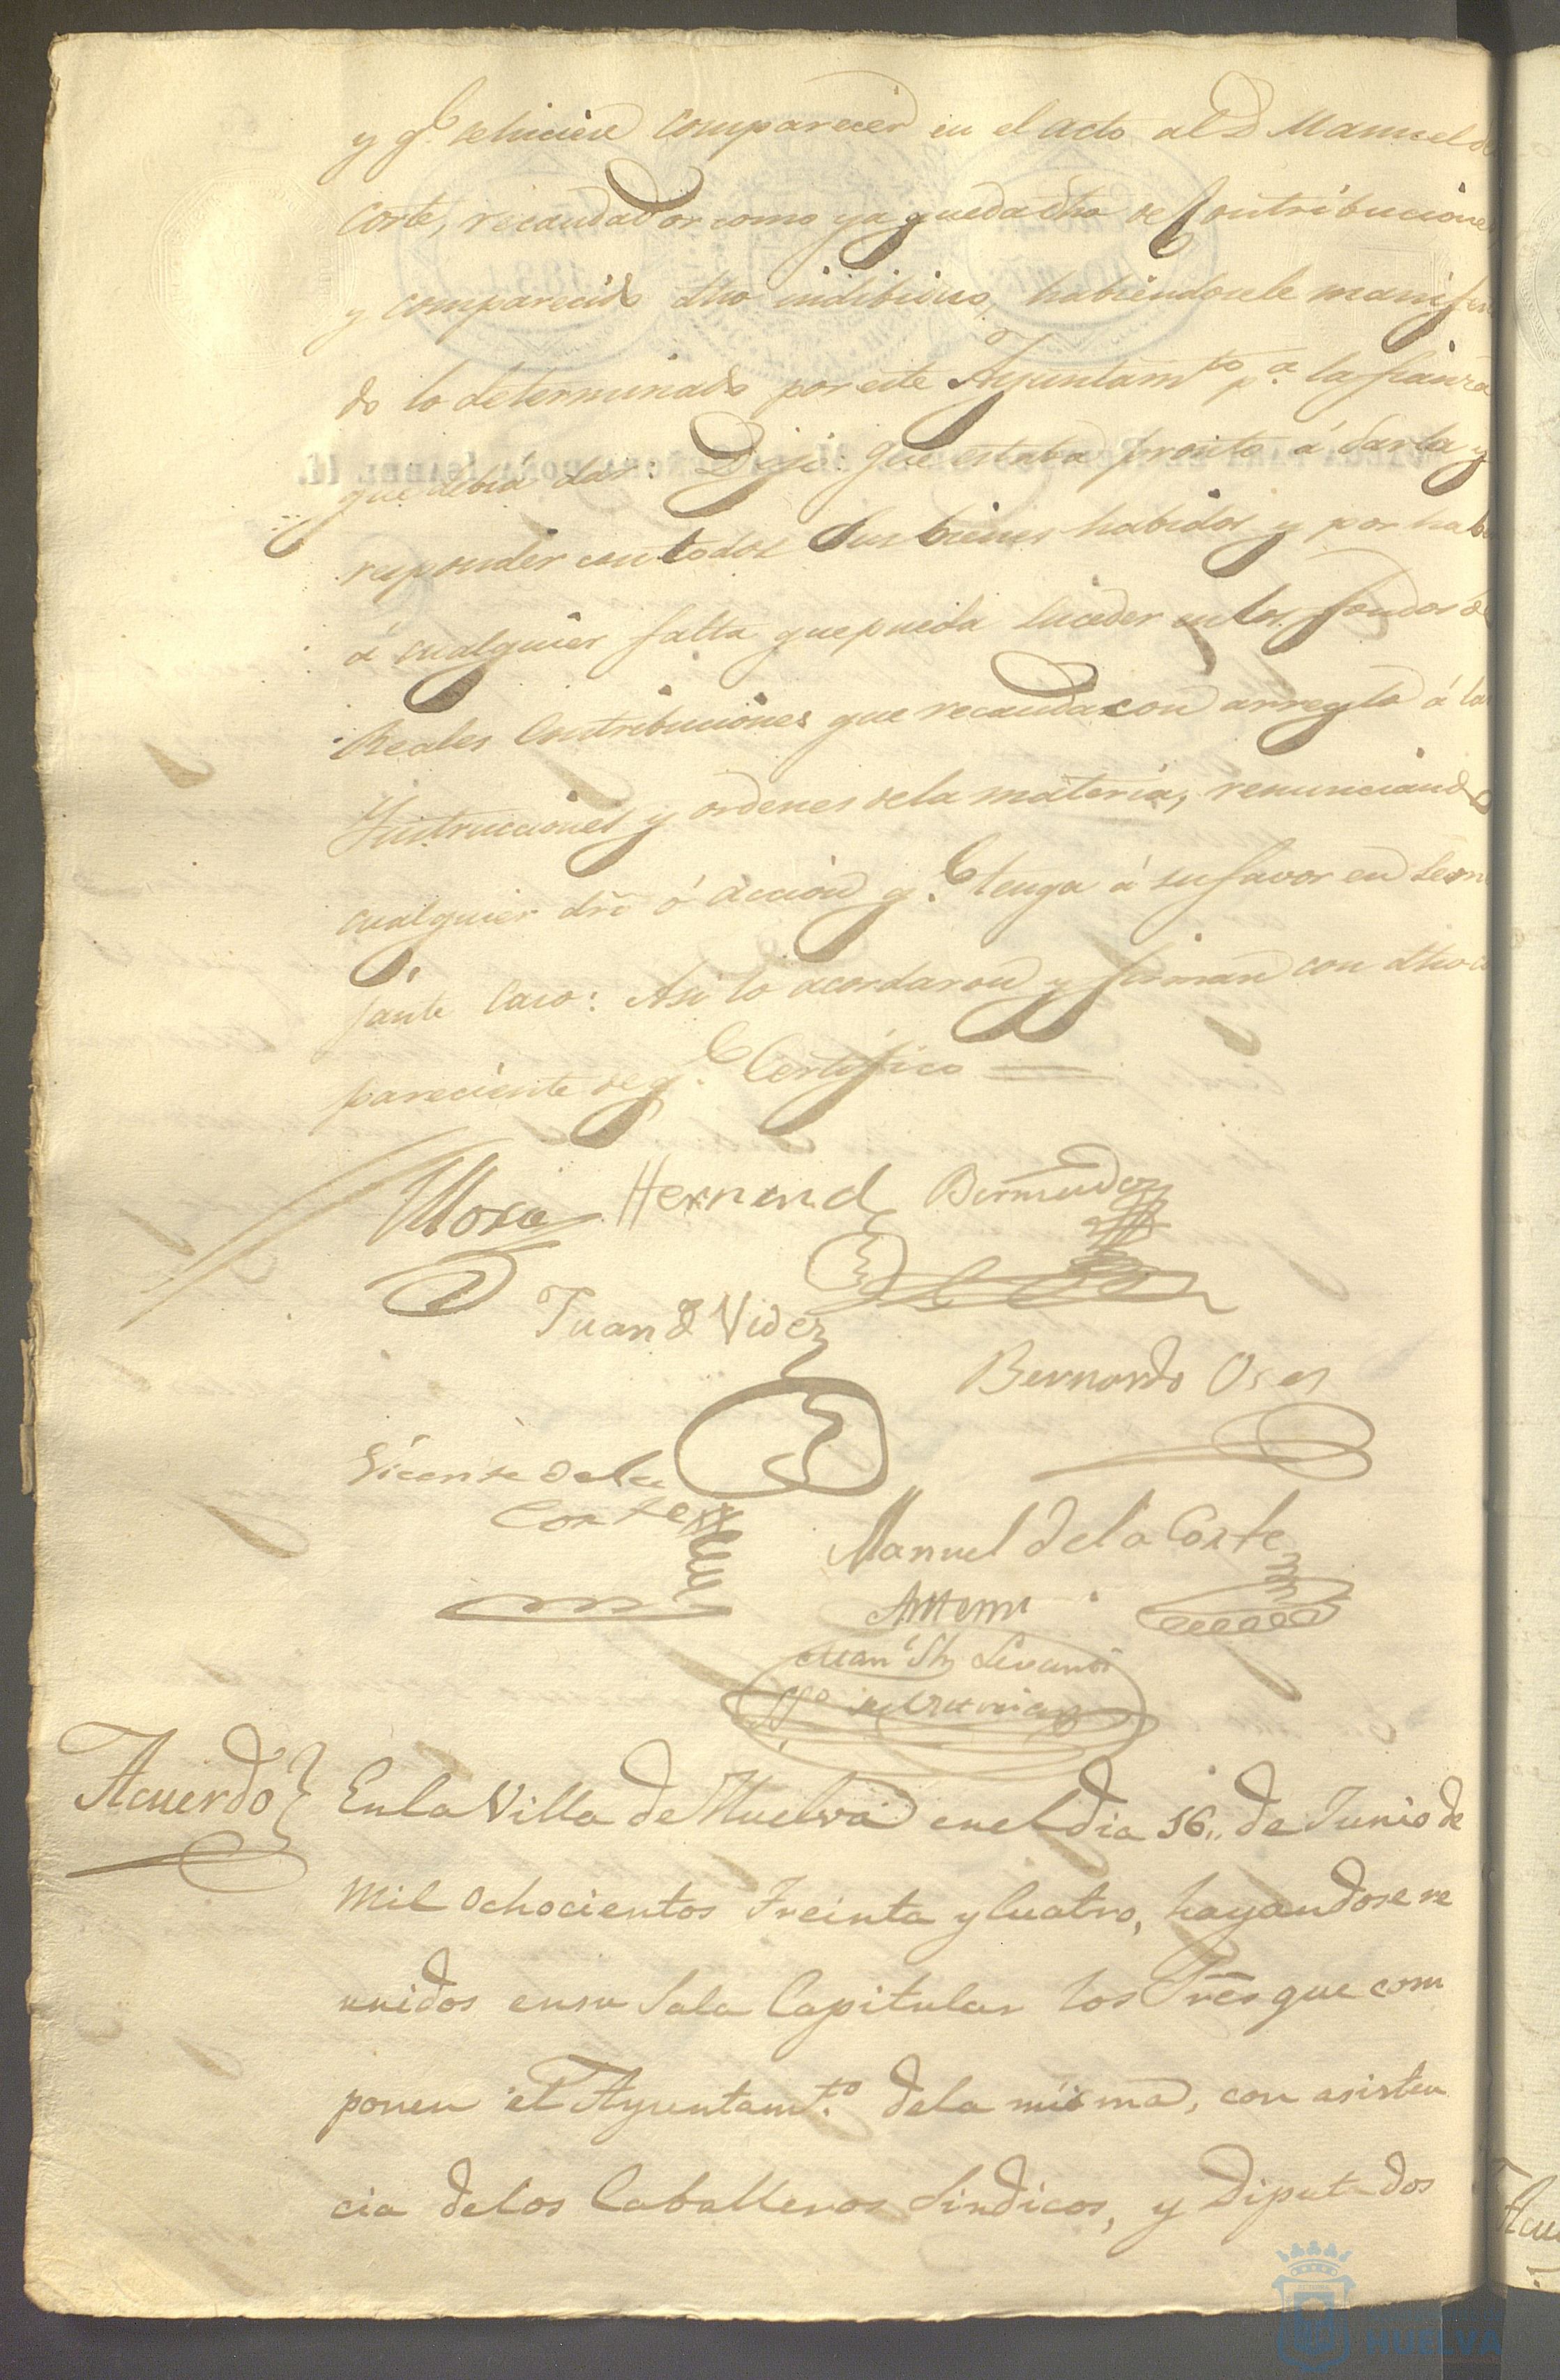 y q.e se hiciere comparecer en el acto al D Manuel de
Corte, recaudador como ya queda dho de Contribucione
y comparecido dho indibiduo, habiendosele manifes
do lo determinado por este Ayuntam.to p.a la fianza
que debia dar: Dijo: Que estaba pronto á darla y
responder con todos sus bienes habidos y por habe
á cualquier falta que pueda suceder en los fondos de
Reales Contribuciones que recauda con arreglo á las
Instrucciones y ordenes de la materia, renunciando
cualquier dro ó accion q.e tenga á su favor en seme
jante caso: Asi lo acordaron y firman con dho co
pareciente de q.e Certifico
Ulloa Hernand Bermudez
Juan d Videz
Bernardo
Vicente de la
Corte
Manuel de la Corte
Ante mi
Acuerdo
En la Villa de Huelva en el dia 16,, de Junio de
Mil Ochocientos Treinta y Cuatro, hayandose re
unidos en su Sala Capitular los Sres que com
ponen el Ayuntam.to de la misma, con asisten
cia de los Caballeros Sindicos, y Diputados
Acu
HUELVA